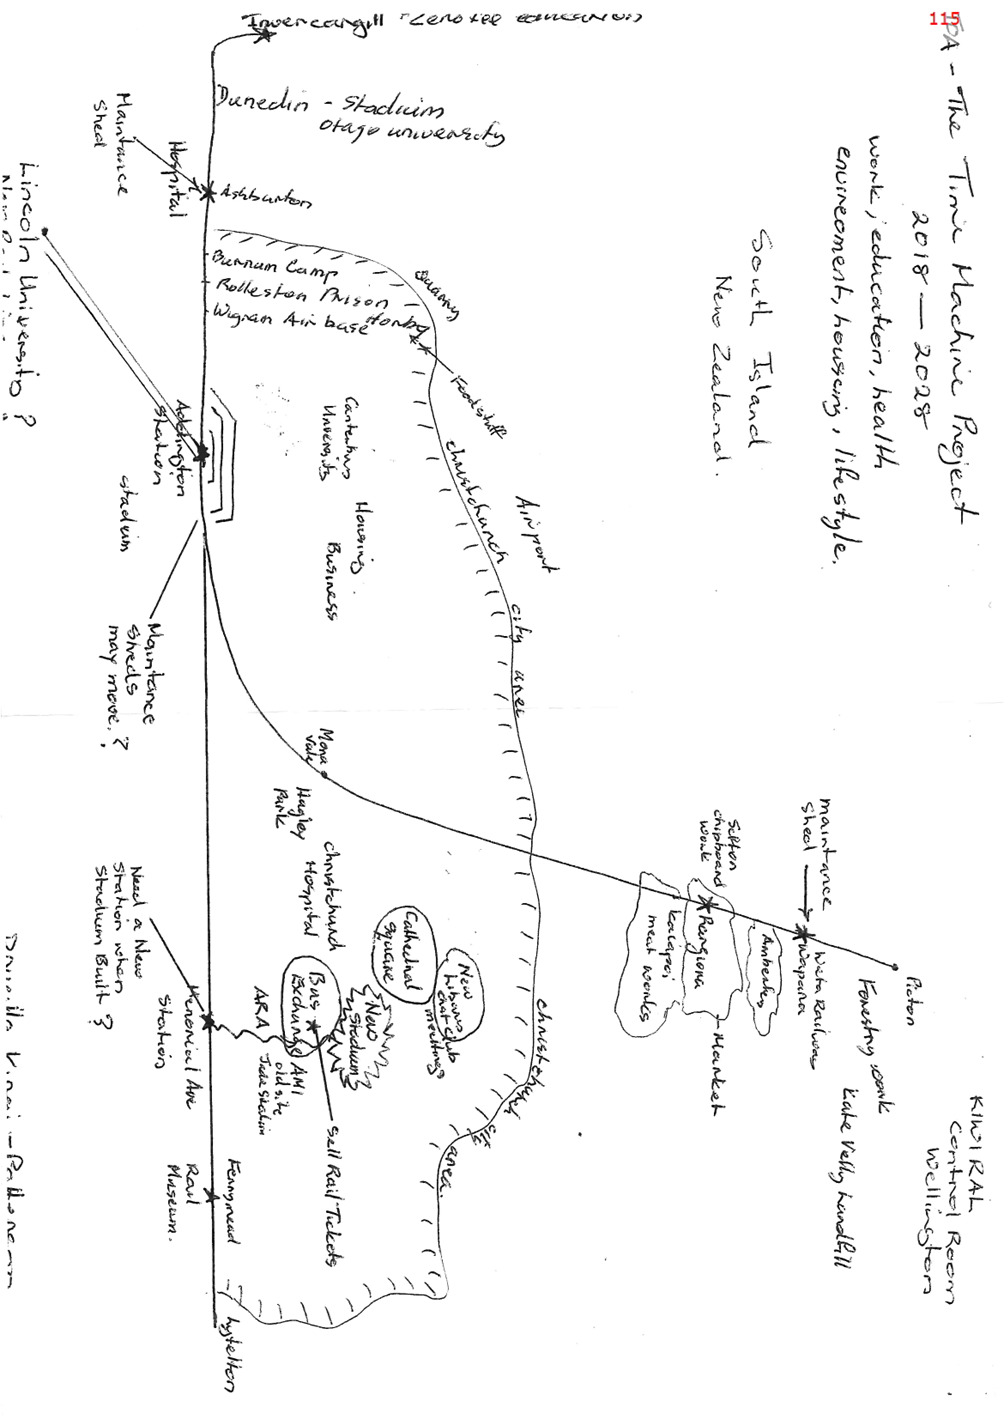 115
PA - The Time Machine Project
2018 — 2028
work, education, health
enviroment, housing, lifestyle.
South Island
New Zealand.
KIWI RAIL
Control Room
Wellington
Invercargill -
Dunedin - Stadium
otago university
Maintance
Shed
Hospital
Ashburton
Lincoln University ?
Burnam Camp
Rolleston Prison
Wigram Air base
Hornby
Quarry
Foodstuff
Addington
Station
Stadium
Maintance
Sheds
may move. ?
University
Housing
Business
Airport
christchurch
city area
christchurch
area.
Mona
Vale
Hagley
Park
christchurch
Hospital
Cathedral
Square
New
meetings
Bus
Exchange
New
Stadium
ARA
AMI
old site
Sell Rail Tickets
Need a New
Station when
Stadium Built ?
Station
Ferrymead
Rail
Museum.
lyttelton
maintrance
Shed
Waipara
Railway
Amberley
chipboard
work
Rangiora
Market
kaiapoi
meat works
Picton
Forestry work
Kate Velly Landfill